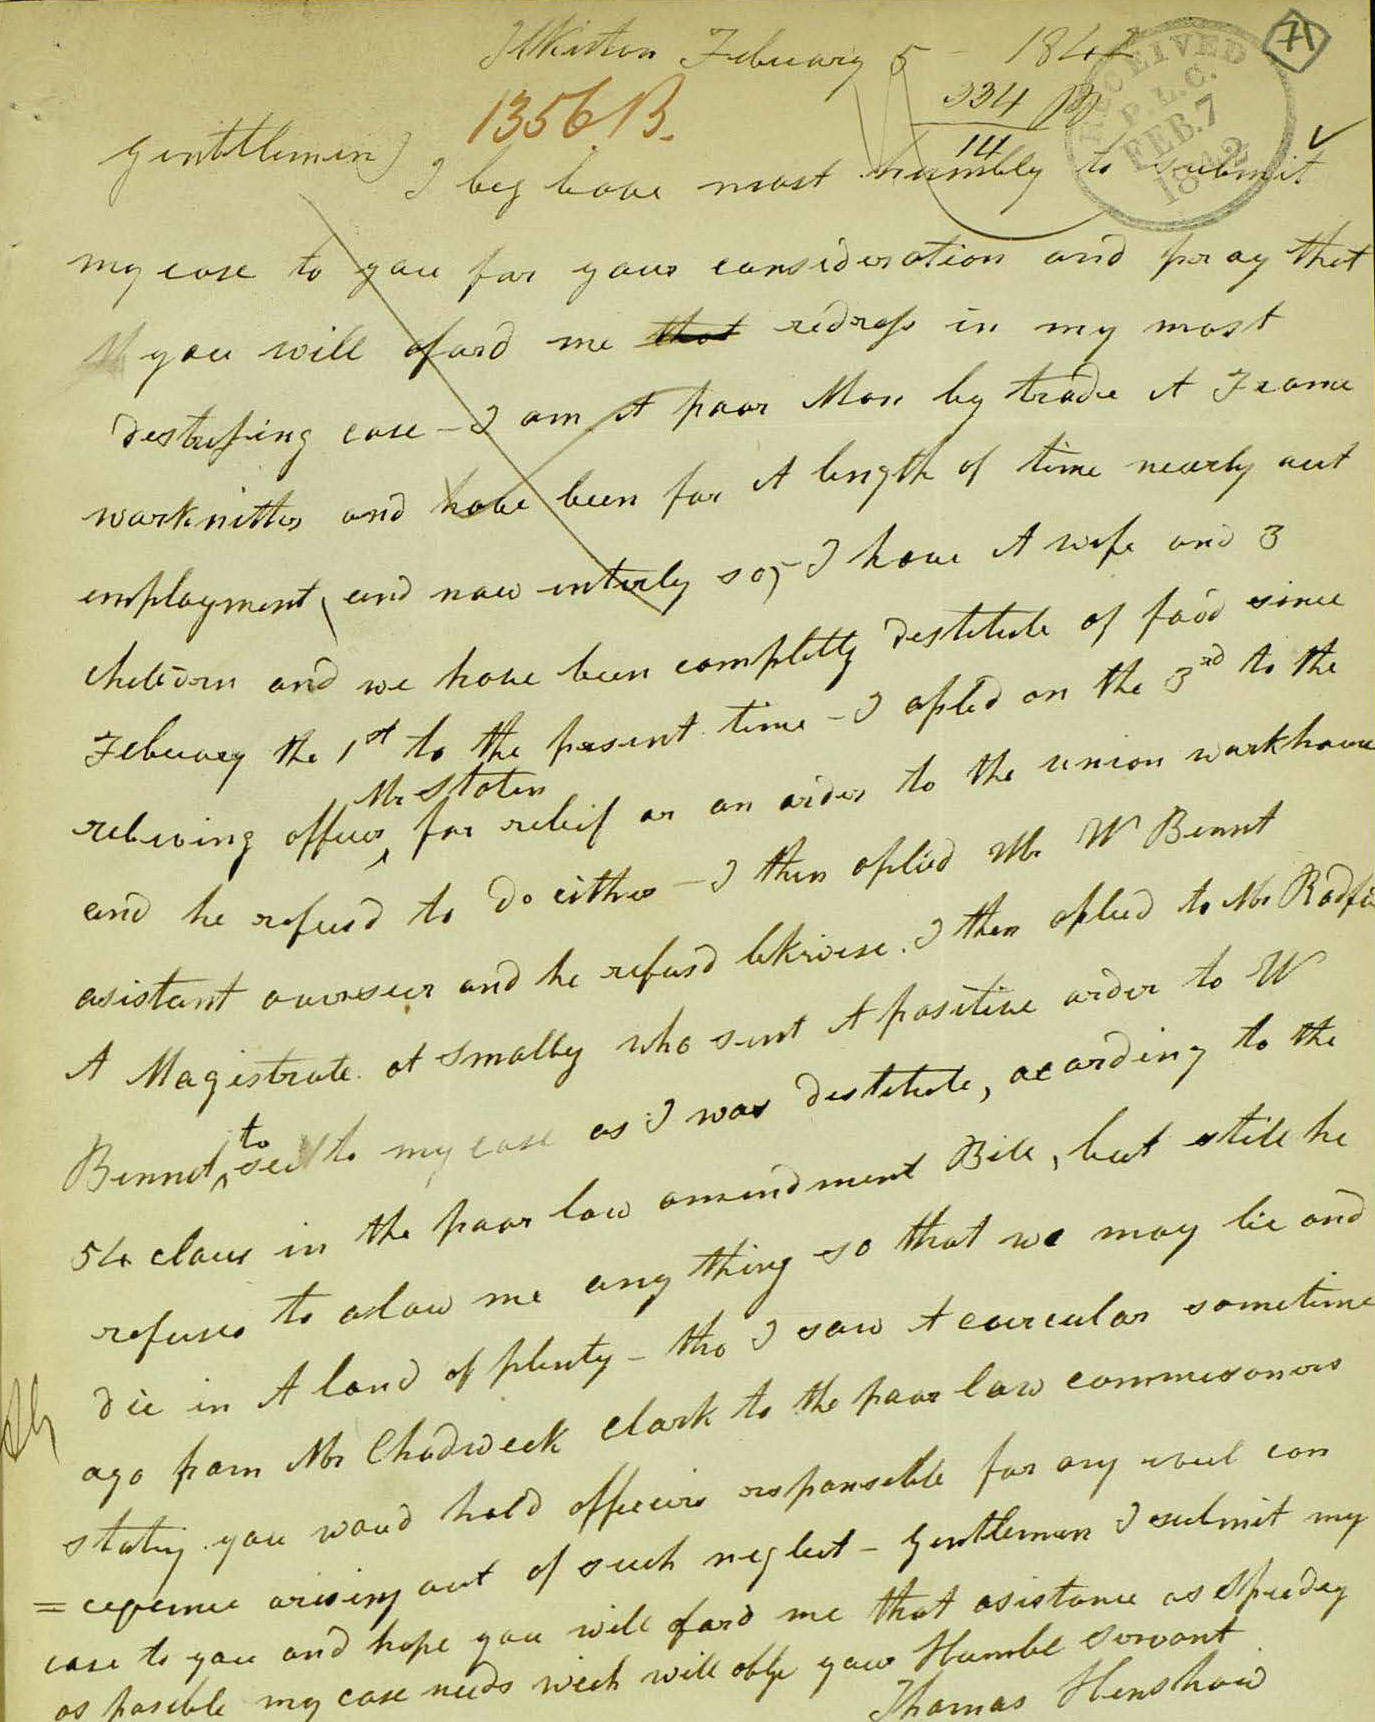 Ilkiston Febuary 5 - 1842
71
RECEIVED
P.L.C.
FEB. 7
1842
1356 B.
334
14
Genttlemen) I beg leave most humbly to submit
my case to you for your consideration and pray that
you will aford me that redress in my most
destressing case - I am A poor Man by trade A Frame
workniter and have been for A length of time nearly out
employment, and now enterly so, - I have A wife and 3
children and we have been completly destitute of food since
Febuary the 1st to the present time - I apled on the 3rd to the
releiving officer Mr Staten for releif or an order to the union workhouse
and he refused to do either - I then aplied Mr W Bennt
asistant overseer and he refused likwise. I then aplied to Mr Radfo
A Magistrate at Smalley who sent A positive order to W
Bennet, to see to my case as I was destitute, acording to the
54 claus in the poor law amendment Bill, but still he
refuses to alow me any thing so that we may lie and
die in A land of plenty - tho I saw A curcular sometime
ago from Mr Chadweck Clark to the poor law commesoners
stating you woud hold officeirs responseble for any evel con
=cequence arising out of such neglect - Gentlemen I submit my
case to you and hope you will aford me that asistance as speedey
as posible my case needs wich will oblge your Humble servant
Thomas Henshaw